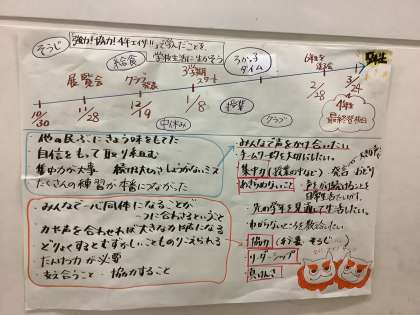 そうじ
「強力！協力！4年エイサー」で学んだことを、
学校生活に生かそう
給食
3学期
スタート
ろかっ子
タイム
6年生を
送る会
5年生
展覧会
クラブ
発表
10/30
11/28
12/19
1/8
2/28
3/24
中休み
授業
クラブ
4年生
最終登校日
・他の民ぞくにきょう味をもてた
自信をもって取り組む
集中力が大事
たくさんの練習が本番につながった
・みんなで一心同体になることが
一つに合わさるということ
・力や声を合わせれば大きな力になる
・どりょくするとむずかしいこともりこえられる
・だんけつ力が必要
・支え合うこと・協力すること
・みんなで声をかけ合いたい
・チームワークを大切にしたい。
・集中力（授業の中など）発言
・あきらめないこと
日常生活でしたい。
・先の学年を見通して生活したい。
・わからないところを教え合いたい
・協力（行事・そうじ）
・リーダーシップ
・真けんさ